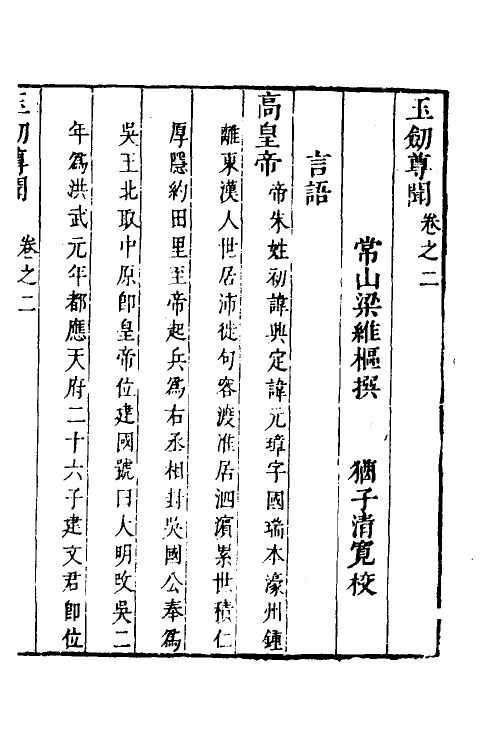 玉劒尊聞卷之二
常山梁維樞撰　猶子清寬校
言語
高皇帝帝朱姓初諱興定諱元璋字國瑞本濠州鍾
離東漢人世居沛徙句容渡淮居泗濱累世積仁
厚隱約田里至帝起兵爲右丞相封吳國公奉爲
吳王北取中原卽皇帝位建國號曰大明改吳二
年爲洪武元年都應天府二十六子建文君卽位
玉劒尊聞　卷之二